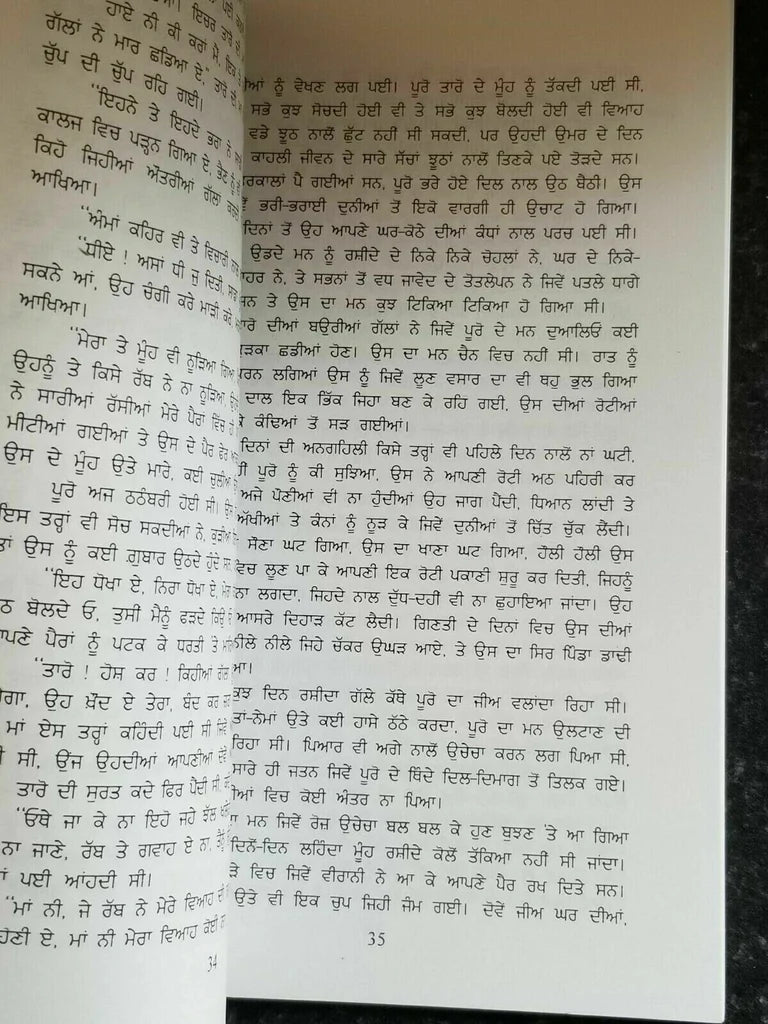 ਹਾਏ ਨੀ ਕੀ ਕਰਾਂ ਮੈਂ.
ਗੱਲਾਂ ਨੇ ਮਾਰ ਛਡਿਆ ਏ,"
ਚੁੱਪ ਦੀ ਚੁੱਪ ਰਹਿ ਗਈ।
"ਇਹਨੇ ਤੇ ਇਹਦੇ ਭਰਾ ਨੇ
ਕਾਲਜ ਵਿਚ ਪੜ੍ਹਨ ਗਿਆ ਏ,
ਕਿਹੋ ਜਿਹੀਆਂ ਅੰਤਰੀਆਂ ਗੱਲਾਂ
ਆਖਿਆ।
"ਅੰਮਾਂ ਕਹਿਰ ਵੀ ਤੇ ਵਿਚਾਰੀ
"ਧੀਏ ! ਅਸਾਂ ਧੀ ਜੁ ਦਿਤੀ,
ਸਕਨੇ ਆਂ, ਉਹ ਚੰਗੀ ਕਰੇ ਮਾੜੀ ਕਰੇ,
ਆਖਿਆ।
"ਮੇਰਾ ਤੇ ਮੂੰਹ ਵੀ ਨੂੜਿਆ ਗਿਆ
ਉਹਨੂੰ ਤੇ ਕਿਸੇ ਰੱਬ ਨੇ ਨਾ ਨੂੜਿਆ,
ਨੇ ਸਾਰੀਆਂ ਰੱਸੀਆਂ ਮੇਰੇ ਪੈਰਾਂ ਵਿੱਚ
ਮੀਟੀਆਂ ਗਈਆਂ ਤੇ ਉਸ ਦੇ ਪੈਰ
ਉਸ ਦੇ ਮੂੰਹ ਉਤੇ ਮਾਰੇ, ਕਈ ਚੁਲੀਆਂ
ਪੂਰੋ ਅਜ ਠਠੰਬਰੀ ਹੋਈ ਸੀ।
ਇਸ ਤਰ੍ਹਾਂ ਵੀ ਸੋਚ ਸਕਦੀਆ ਨੇ,
ਤਾਂ ਉਸ ਨੂੰ ਕਈ ਗੁਬਾਰ ਉਠਦੇ ਹੁੰਦੇ ਸਨ,
"ਇਹ ਧੋਖਾ ਏ, ਨਿਰਾ ਧੋਖਾ ਏ,
ਠ ਬੋਲਦੇ ਓ, ਤੁਸੀ ਮੈਨੂੰ ਫੜਦੇ ਕਿਉਂ
ਪਣੇ ਪੈਰਾਂ ਨੂੰ ਪਟਕ ਕੇ ਧਰਤੀ ਤੇ
"ਤਾਰੋ ! ਹੋਸ਼ ਕਰ ! ਕਿਹੀਆਂ ਗੱਲਾਂ
ਉਹ ਖ਼ੌਂਦ ਏ ਤੇਰਾ, ਬੰਦ ਕਰ
ਮਾਂ ਏਸ ਤਰ੍ਹਾਂ ਕਹਿੰਦੀ ਪਈ ਸੀ ਜਿਵੇਂ
ਸੀ, ਉਂਜ ਉਹਦੀਆਂ ਆਪਣੀਆਂ
ਤਾਰੋ ਦੀ ਸੁਰਤ ਕਦੇ ਫਿਰ ਪੈਂਦੀ ਸੀ,
"ਓਥੇ ਜਾ ਕੇ ਨਾ ਇਹੋ ਜਹੇ ਝੱਲ
ਨਾ ਜਾਣੇ, ਰੱਬ ਤੇ ਗਵਾਹ ਏ ਨਾ,
ਪਈ ਆਂਹਦੀ ਸੀ।
"ਮਾਂ ਨੀ, ਜੇ ਰੱਬ ਨੇ ਮੇਰੇ ਵਿਆਹ ਦੀ
ਹੋਣੀ ਏ, ਮਾਂ ਨੀ ਮੇਰਾ ਵਿਆਹ ਕੋਈ
34
ਆਂ ਨੂੰ ਵੇਖਣ ਲਗ ਪਈ। ਪੂਰੋ ਤਾਰੋ ਦੇ ਮੂੰਹ ਨੂੰ ਤੱਕਦੀ ਪਈ ਸੀ,
ਸਭੋ ਕੁਝ ਸੋਚਦੀ ਹੋਈ ਵੀ ਤੇ ਸਭੋ ਕੁਝ ਬੋਲਦੀ ਹੋਈ ਵੀ ਵਿਆਹ
ਵਡੇ ਝੂਠ ਨਾਲੋਂ ਛੁੱਟ ਨਹੀ ਸੀ ਸਕਦੀ, ਪਰ ਉਹਦੀ ਉਮਰ ਦੇ ਦਿਨ
ਕਾਹਲੀ ਜੀਵਨ ਦੇ ਸਾਰੇ ਸੱਚਾਂ ਝੂਠਾਂ ਨਾਲੋਂ ਤਿਣਕੇ ਪਏ ਤੋੜਦੇ ਸਨ।
ਰਕਾਲਾਂ ਪੈ ਗਈਆਂ ਸਨ, ਪੂਰੋ ਭਰੇ ਹੋਏ ਦਿਲ ਨਾਲ ਉਠ ਬੈਠੀ। ਉਸ
ਭਰੀ-ਭਰਾਈ ਦੁਨੀਆਂ ਤੋਂ ਇਕੋ ਵਾਰਗੀ ਹੀ ਉਚਾਟ ਹੋ ਗਿਆ।
ਦਿਨਾਂ ਤੋਂ ਉਹ ਆਪਣੇ ਘਰ-ਕੋਠੇ ਦੀਆਂ ਕੰਧਾਂ ਨਾਲ ਪਰਚ ਪਈ ਸੀ।
ਉਡਦੇ ਮਨ ਨੂੰ ਰਸ਼ੀਦੇ ਦੇ ਨਿਕੇ ਨਿਕੇ ਚੋਹਲਾਂ ਨੇ, ਘਰ ਦੇ ਨਿਕੇ-
ਆਹਰ ਨੇ, ਤੇ ਸਭਨਾਂ ਤੋਂ ਵਧ ਜਾਵੇਦ ਦੇ ਤੋਤਲੇਪਨ ਨੇ ਜਿਵੇਂ ਪਤਲੇ ਧਾਗੇ
ਤੇ ਉਸ ਦਾ ਮਨ ਕੁਝ ਟਿਕਿਆ ਟਿਕਿਆ ਹੋ ਗਿਆ ਸੀ।
ਤਾਰੋ ਦੀਆਂ ਬਉਰੀਆਂ ਗੱਲਾਂ ਨੇ ਜਿਵੇਂ ਪੂਰੋ ਦੇ ਮਨ ਦੁਆਲਿਓ ਕਈ
ਛਡੀਆਂ ਹੋਣ। ਉਸ ਦਾ ਮਨ ਚੈਨ ਵਿਚ ਨਹੀਂ ਸੀ। ਰਾਤ ਨੂੰ
ਲਗਿਆਂ ਉਸ ਨੂੰ ਜਿਵੇਂ ਲੂਣ ਵਸਾਰ ਦਾ ਵੀ ਥਹੁ ਭੁਲ ਗਿਆ
ਦਾਲ ਇਕ ਭਿੱਕ ਜਿਹਾ ਬਣ ਕੇ ਰਹਿ ਗਈ, ਉਸ ਦੀਆਂ ਰੋਟੀਆਂ
ਕੰਢਿਆਂ ਤੋਂ ਸੜ ਗਈਆਂ।
ਦਿਨਾਂ ਦੀ ਅਨਗਹਿਲੀ ਕਿਸੇ ਤਰ੍ਹਾਂ ਵੀ ਪਹਿਲੇ ਦਿਨ ਨਾਲੋਂ ਨਾਂ ਘਟੀ,
ਪੂਰੋ ਨੂੰ ਕੀ ਸੁਝਿਆ, ਉਸ ਨੇ ਆਪਣੀ ਰੋਟੀ ਅਠ ਪਹਿਰੀ ਕਰ
ਅਜੇ ਪੌਣੀਆਂ ਵੀ ਨਾ ਹੁੰਦੀਆਂ ਉਹ ਜਾਗ ਪੈਂਦੀ, ਧਿਆਨ ਲਾਂਦੀ ਤੇ
ਅੱਖੀਆਂ ਤੇ ਕੰਨਾਂ ਨੂੰ ਨੂੜ ਕੇ ਜਿਵੇਂ ਦੁਨੀਆਂ ਤੋਂ ਚਿੱਤ ਚੁੱਕ ਲੈਂਦੀ।
ਸੌਣਾ ਘਟ ਗਿਆ, ਉਸ ਦਾ ਖਾਣਾ ਘਟ ਗਿਆ, ਹੌਲੀ ਹੌਲੀ ਉਸ
ਵਿਚ ਲੂਣ ਪਾ ਕੇ ਆਪਣੀ ਇਕ ਰੋਟੀ ਪਕਾਣੀ ਸ਼ੁਰੂ ਕਰ ਦਿਤੀ, ਜਿਹਨੂੰ
ਨਾ ਲਗਦਾ, ਜਿਹਦੇ ਨਾਲ ਦੁੱਧ-ਦਹੀਂ ਵੀ ਨਾ ਛੁਹਾਇਆ ਜਾਂਦਾ। ਉਹ
ਆਸਰੇ ਦਿਹਾੜ ਕੱਟ ਲੈਂਦੀ। ਗਿਣਤੀ ਦੇ ਦਿਨਾਂ ਵਿਚ ਉਸ ਦੀਆਂ
ਨੀਲੇ ਨੀਲੇ ਜਿਹੇ ਚੱਕਰ ਉਘੜ ਆਏ, ਤੇ ਉਸ ਦਾ ਸਿਰ ਪਿੰਡਾ ਡਾਢੀ
ਆ।
ਕੁਝ ਦਿਨ ਰਸ਼ੀਦਾ ਗੱਲੇ ਕੱਥੇ ਪੂਰੋ ਦਾ ਜੀਅ ਵਲਾਂਦਾ ਰਿਹਾ ਸੀ।
ਤਾਂ-ਨੇਮਾਂ ਉਤੇ ਕਈ ਹਾਸੇ ਠੱਠੇ ਕਰਦਾ, ਪੂਰੋ ਦਾ ਮਨ ਉਲਟਾਣ ਦੀ
ਰਿਹਾ ਸੀ। ਪਿਆਰ ਵੀ ਅਗੇ ਨਾਲੋਂ ਉਚੇਚਾ ਕਰਨ ਲਗ ਪਿਆ ਸੀ,
ਸਾਰੇ ਹੀ ਜਤਨ ਜਿਵੇਂ ਪੂਰੋ ਦੇ ਥਿੰਦੇ ਦਿਲ-ਦਿਮਾਗ ਤੋਂ ਤਿਲਕ ਗਏ।
ਆਂ ਵਿਚ ਕੋਈ ਅੰਤਰ ਨਾ ਪਿਆ।
ਮਨ ਜਿਵੇਂ ਰੋਜ਼ ਉਚੇਚਾ ਬਲ ਬਲ ਕੇ ਹੁਣ ਬੁਝਣ 'ਤੇ ਆ ਗਿਆ
ਦਿਨੋਂ-ਦਿਨ ਲਹਿੰਦਾ ਮੂੰਹ ਰਸ਼ੀਦੇ ਕੋਲੋਂ ਤੱਕਿਆ ਨਹੀਂ ਸੀ ਜਾਂਦਾ।
ਵਿਚ ਜਿਵੇਂ ਵੀਰਾਨੀ ਨੇ ਆ ਕੇ ਆਪਣੇ ਪੈਰ ਰਖ ਦਿਤੇ ਸਨ।
ਉਤੇ ਵੀ ਇਕ ਚੁਪ ਜਿਹੀ ਜੰਮ ਗਈ। ਦੋਵੇਂ ਜੀਅ ਘਰ ਦੀਆਂ,
35